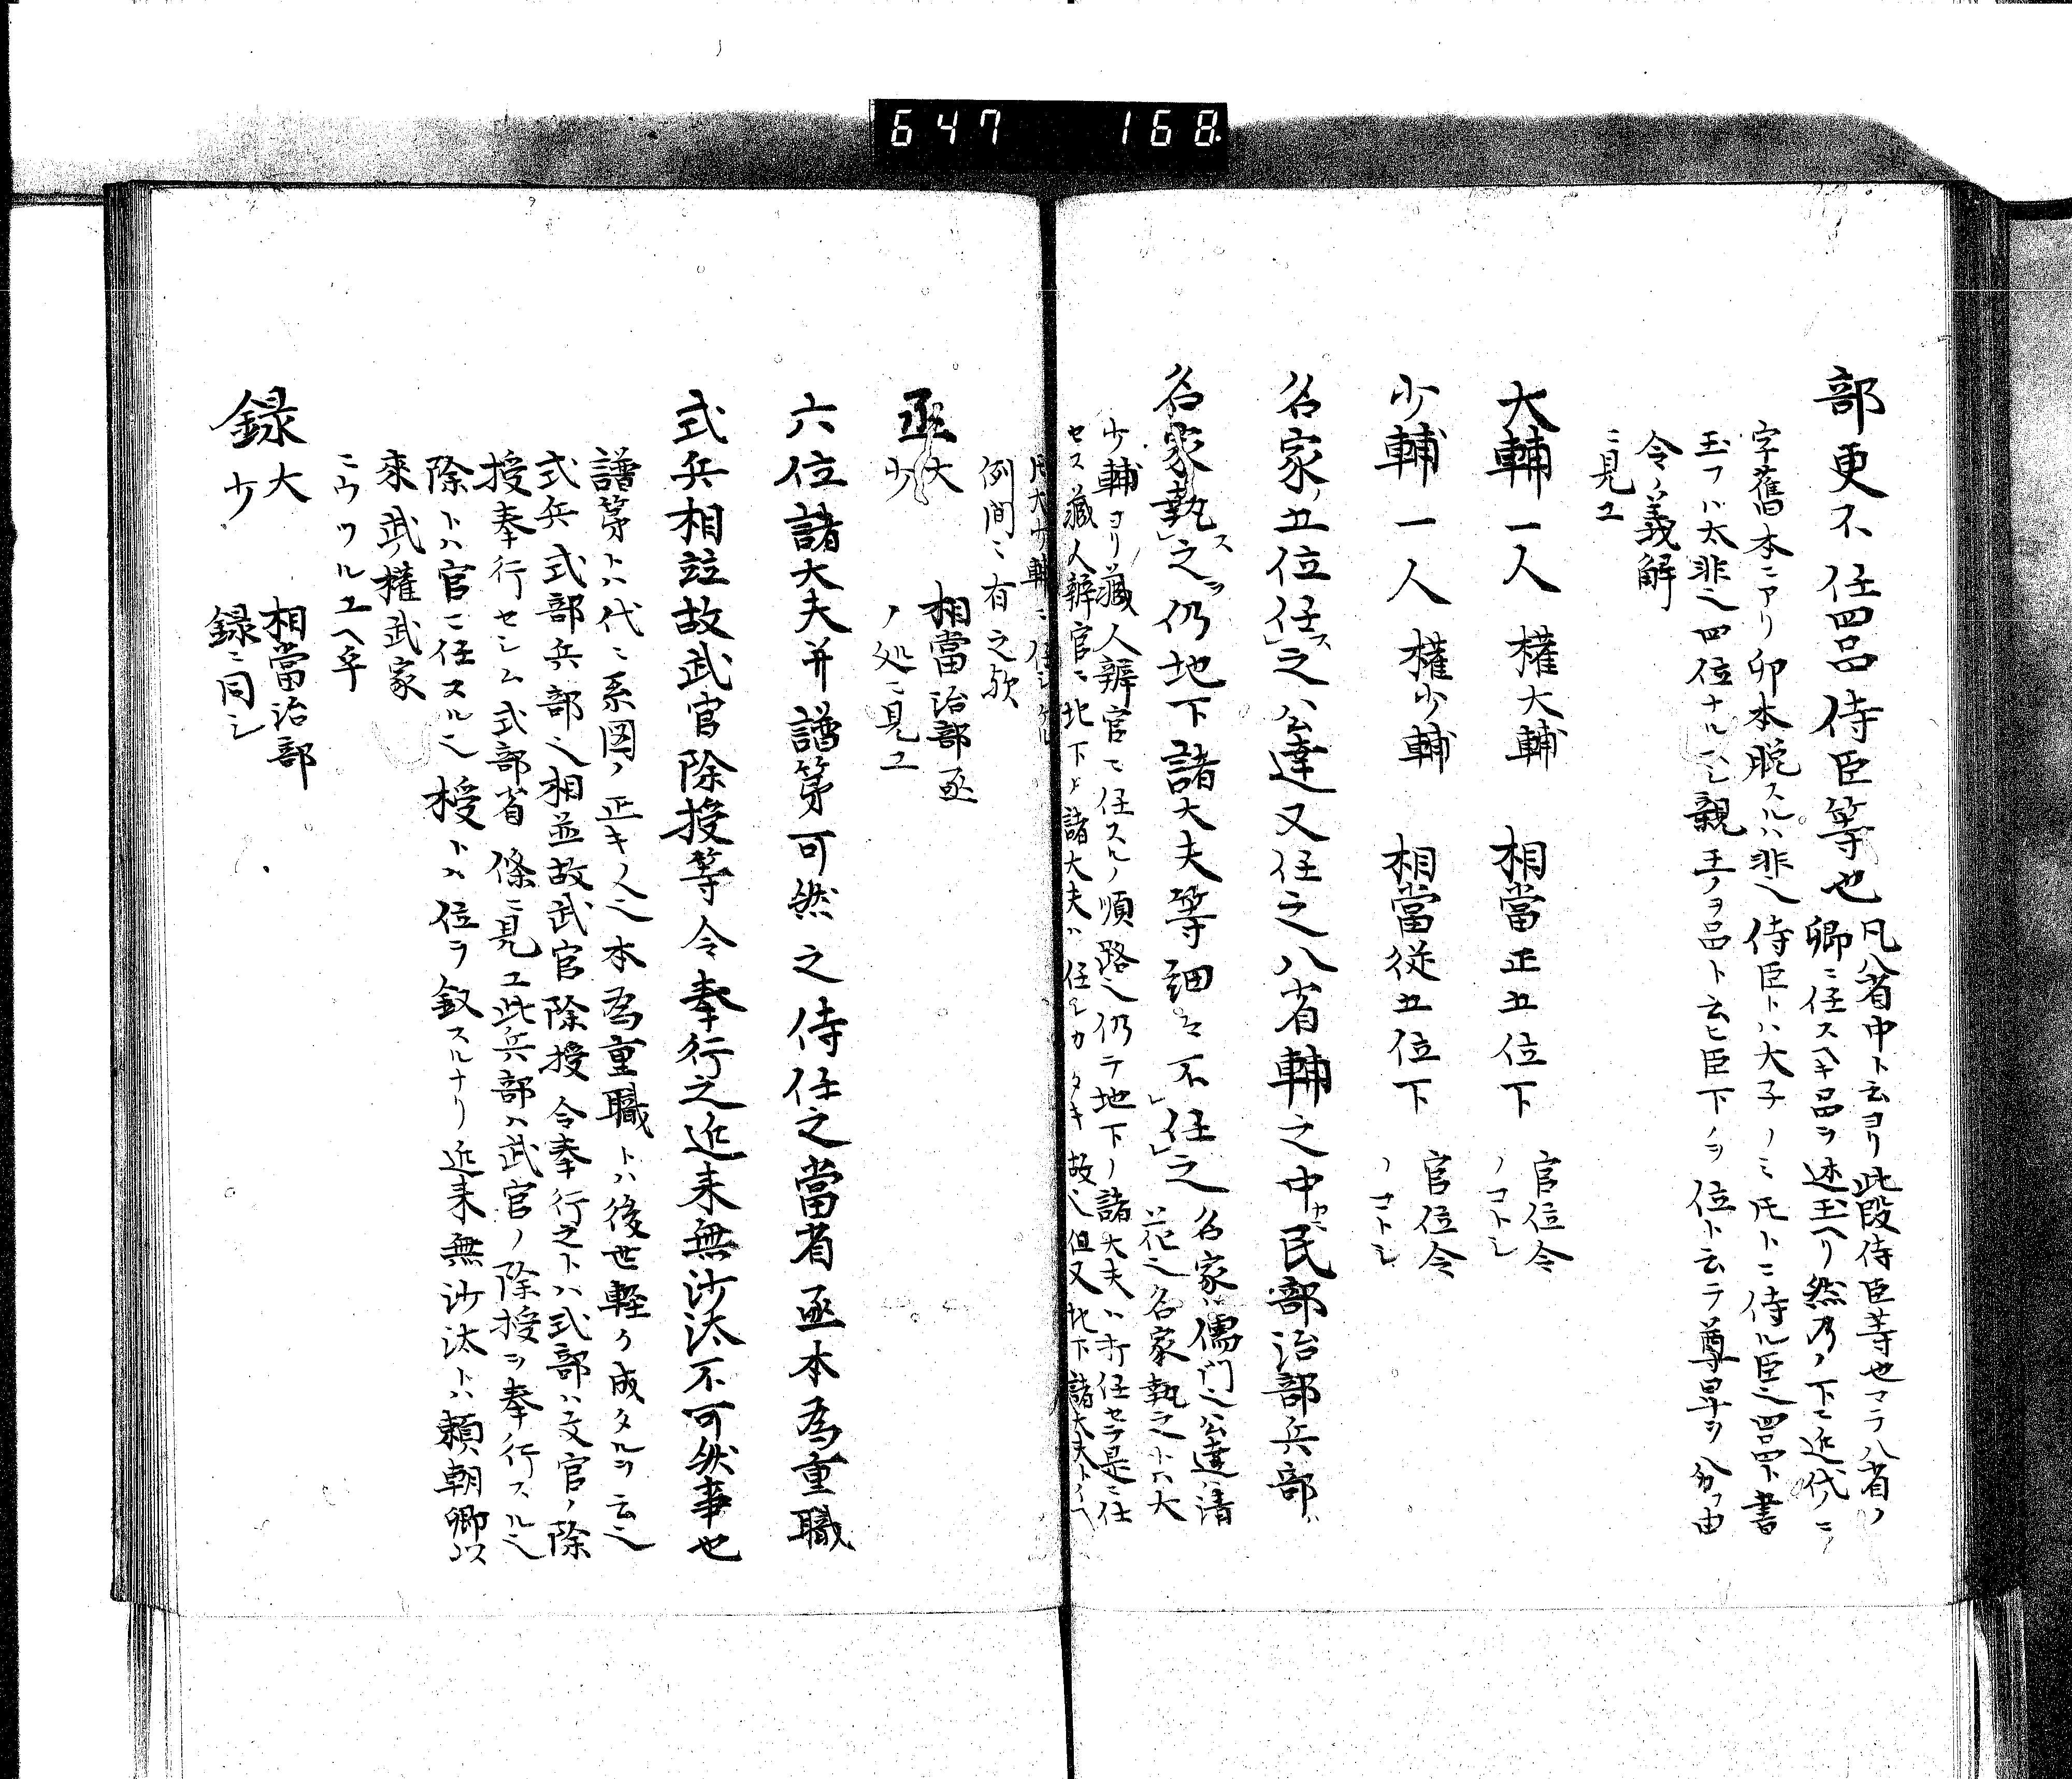 647 168
部更不任四品侍臣等也
凡八省中ト云ヨリ此段侍臣等也マテ八省ノ
卿ニ任スヘキ品ヲ述玉ヘリ然乃ノ下ニ近代ニノ
字舊本ニアリ卯本脱スルハ非也侍臣トハ大子ノミモトニ侍ル臣也四品ト書
玉フハ太非也四位ナルヘシ親王ノヲ品ト云ヒ臣下ノヲ位ト云テ尊卑ヲ分ツ由
令ノ義解
ニ見ユ
大輔一人 權大輔 相當正五位下 官位令
ノコトシ
少輔一人 權少輔 相當従五位下 官位令
ノコトシ
名家ノ五位任ス之公達又任之八省輔之中ニ民部治部兵部ハ
名家執ス之ヲ仍地下諸大夫等細々不任之
名家ハ儒門也公達ハ清
花也名家執之トハ大
少輔ヨリ藏人辨官ニ任スルノ順路也仍テ地下ノ諸大夫ハ不任セラ是ニ任
セス藏人辨官ニ地下ノ諸大夫ハ任シカタキ故也但又地下諸大夫トイヘ
任シケル
例間ニ有之歟
丞 大
少 相當治部丞
ノ処ニ見ユ
六位諸大夫并譜第可然之侍任之當省丞本為重職
式兵相竝故武官除授等令奉行之近来無沙汰不可然事也
譜第トハ代ニ系図ノ正キノ人也本為重職トハ後世軽ク成タルヲ云也
式兵式部兵部也相並故武官除授令奉行之トハ式部ハ文官ノ除
授奉行セシム式部省條ニ見ユ此兵部ハ武官ノ除授ヲ奉行スル也
除トハ官ニ任スル也授トハ位ヲ叙スルナリ近来無沙汰トハ頼朝卿以
来武權武家
ニウツルユヘ乎
録 大
少 相當治部
録ニ同シ